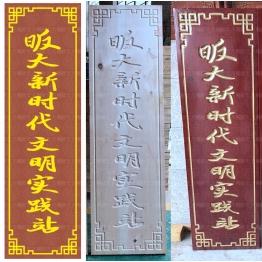 畈大新时代文明实践站
畈大新时代文明实践站
畈大新时代文明实践站